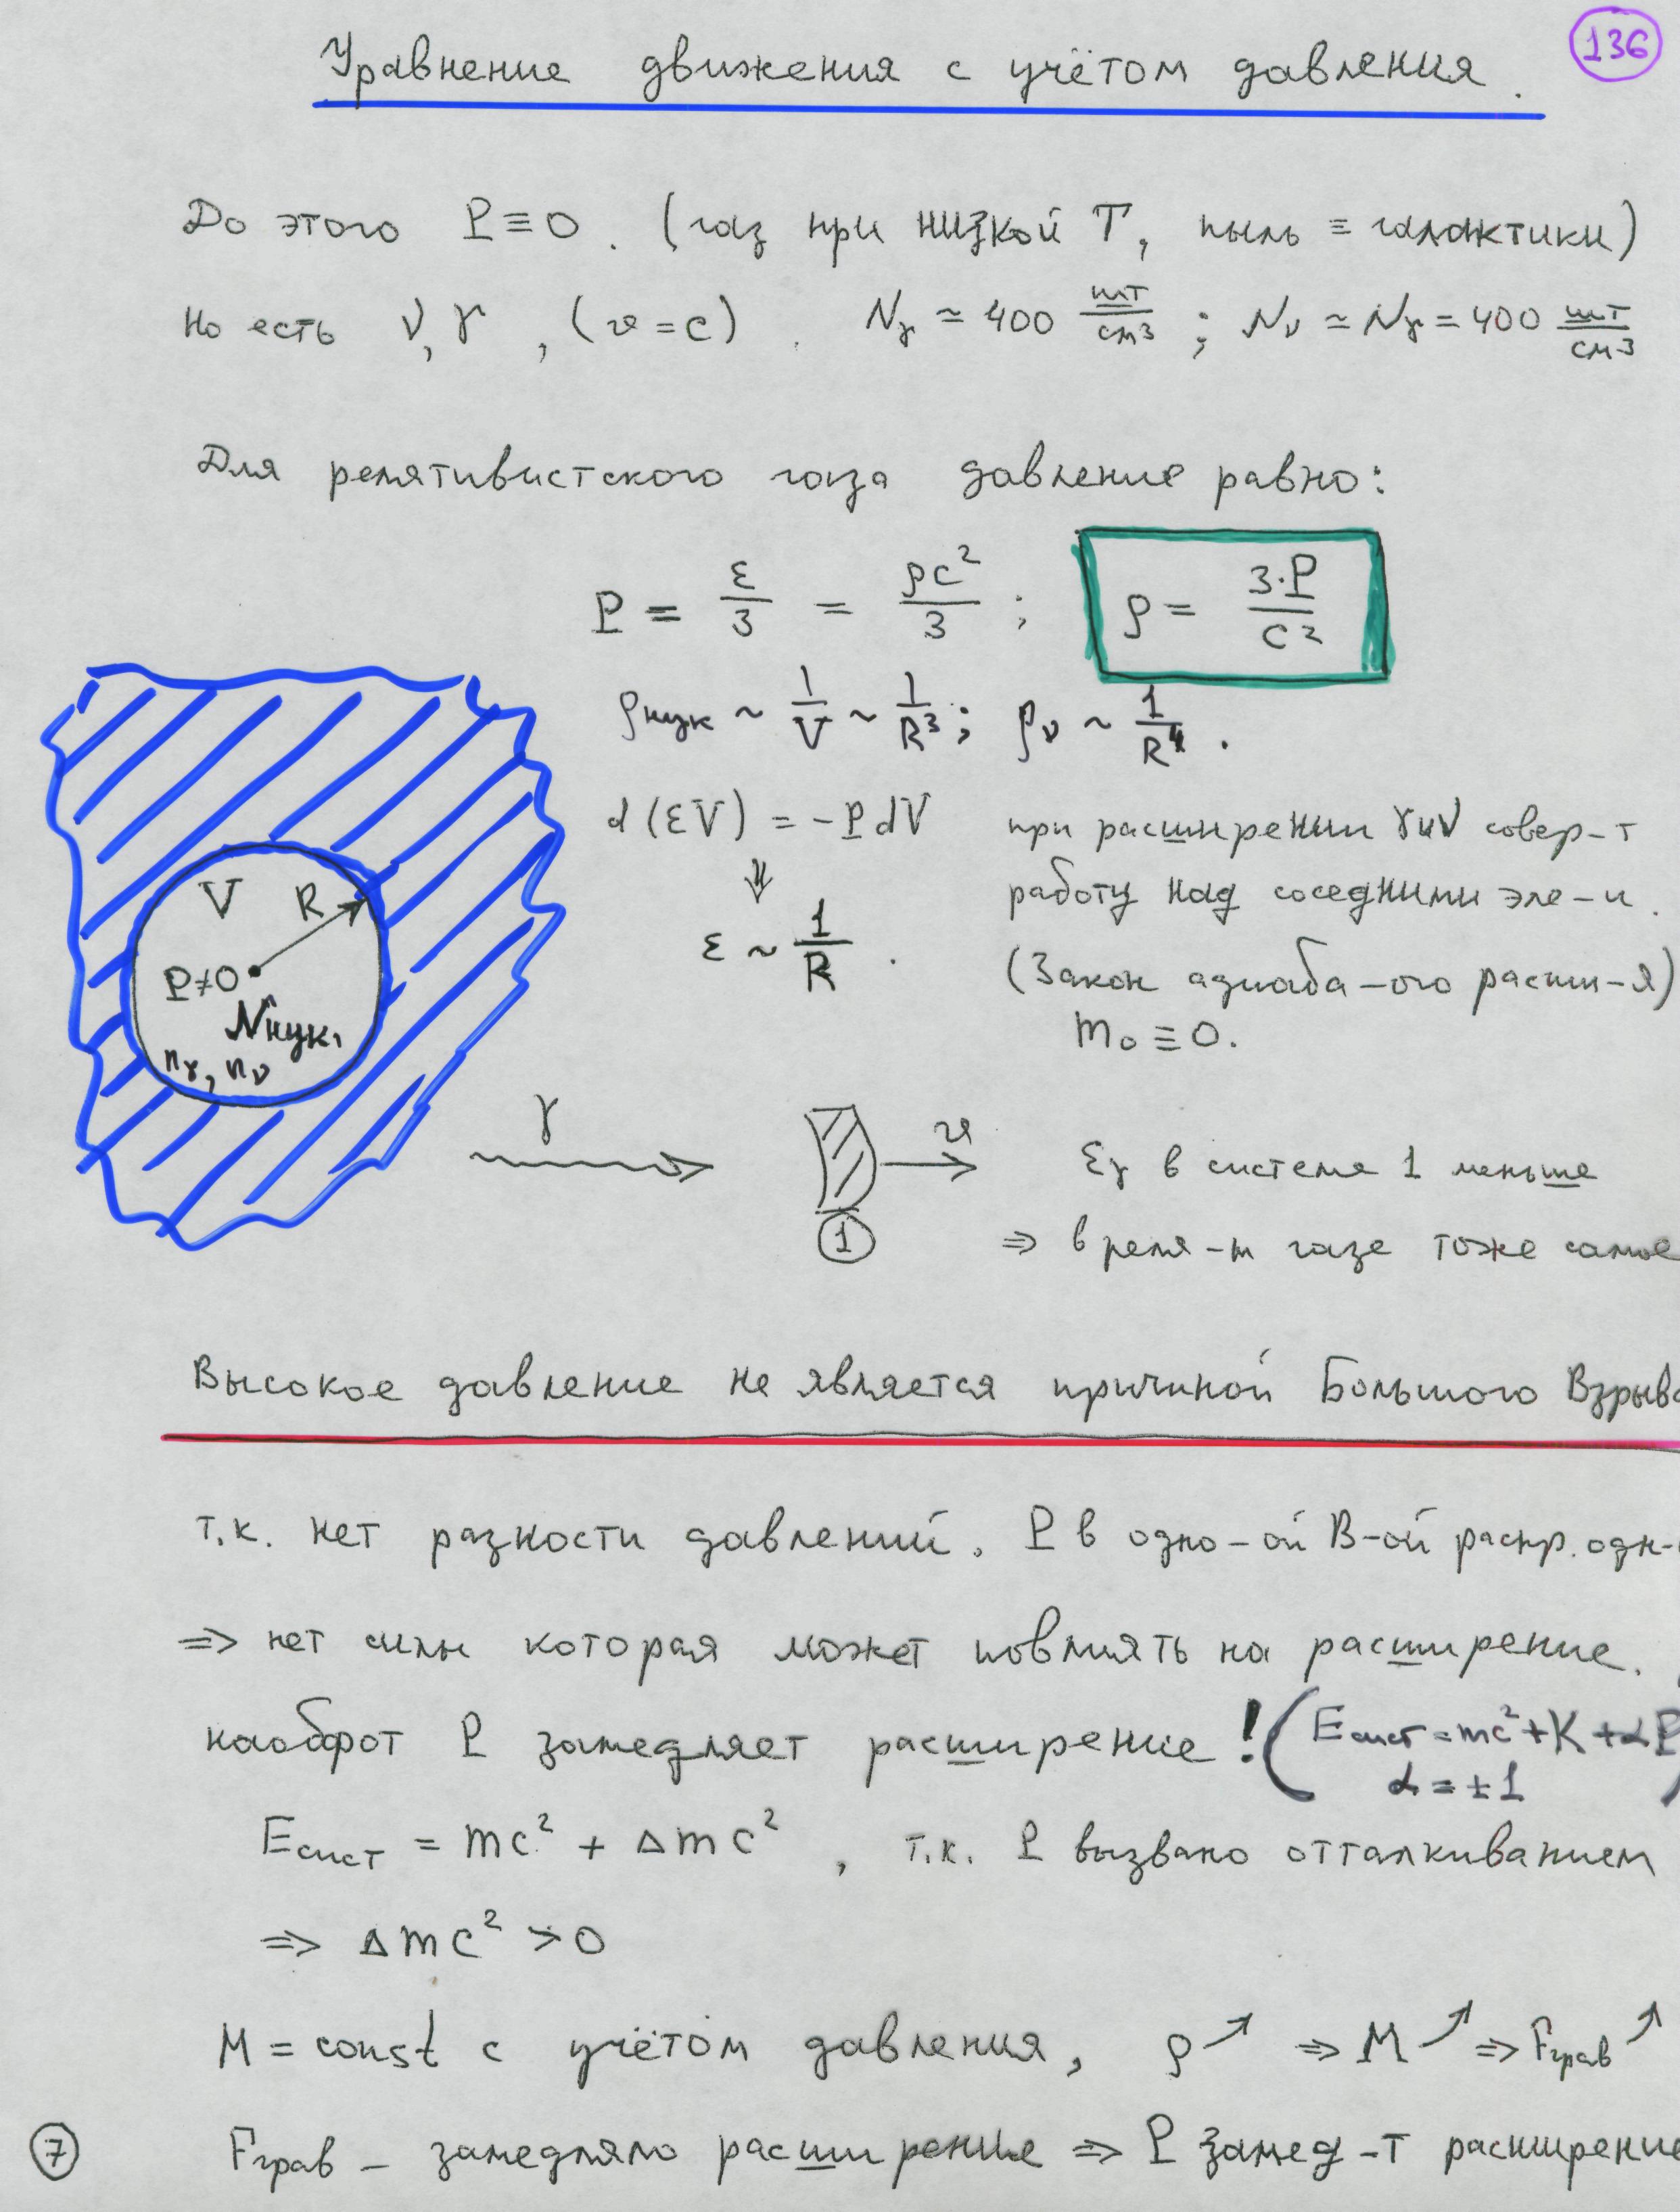 136
Уравнение движения с учётом давления.
До этого P ≡ 0. (газ при низкой T, пыль ≡ галактики)
Но есть ν, γ, (v = c). Nγ ≃ 400 шт/см³; Nν ≃ Nγ = 400 шт/см³
Для релятивистского газа давление равно:
P = ε/3 = ρc²/3; ρ = 3·P/c²
ρнук ~ 1/V ~ 1/R³; ρν ~ 1/R⁴.
d(εV) = -PdV при расширении γ и ν совер-т
⇓ работу над соседними эле-и.
ε ~ 1/R. (Закон адиаба-ого расши-я)
m₀ ≡ 0.
V R
P≠0
Nнук.
nγ, nν
γ v εγ в системе 1 меньше
1 ⇒ в реля-м газе тоже самое
Высокое давление не является причиной Большого Взрыва
т.к. нет разности давлений. P в одно-ой В-ой распр. одн-
⇒ нет силы которая может повлиять на расширение.
наоброт P замедляет расширение! (Eсист = mc² + K + αP
α = ±1)
Eсист = mc² + Δmc², т.к. P вызвано отталкиванием
⇒ Δmc² > 0
M = const с учётом давления, ρ↗ ⇒ M↗ ⇒ Fграв↗
7 Fграв – замедляло расширение ⇒ P замед-т расширение